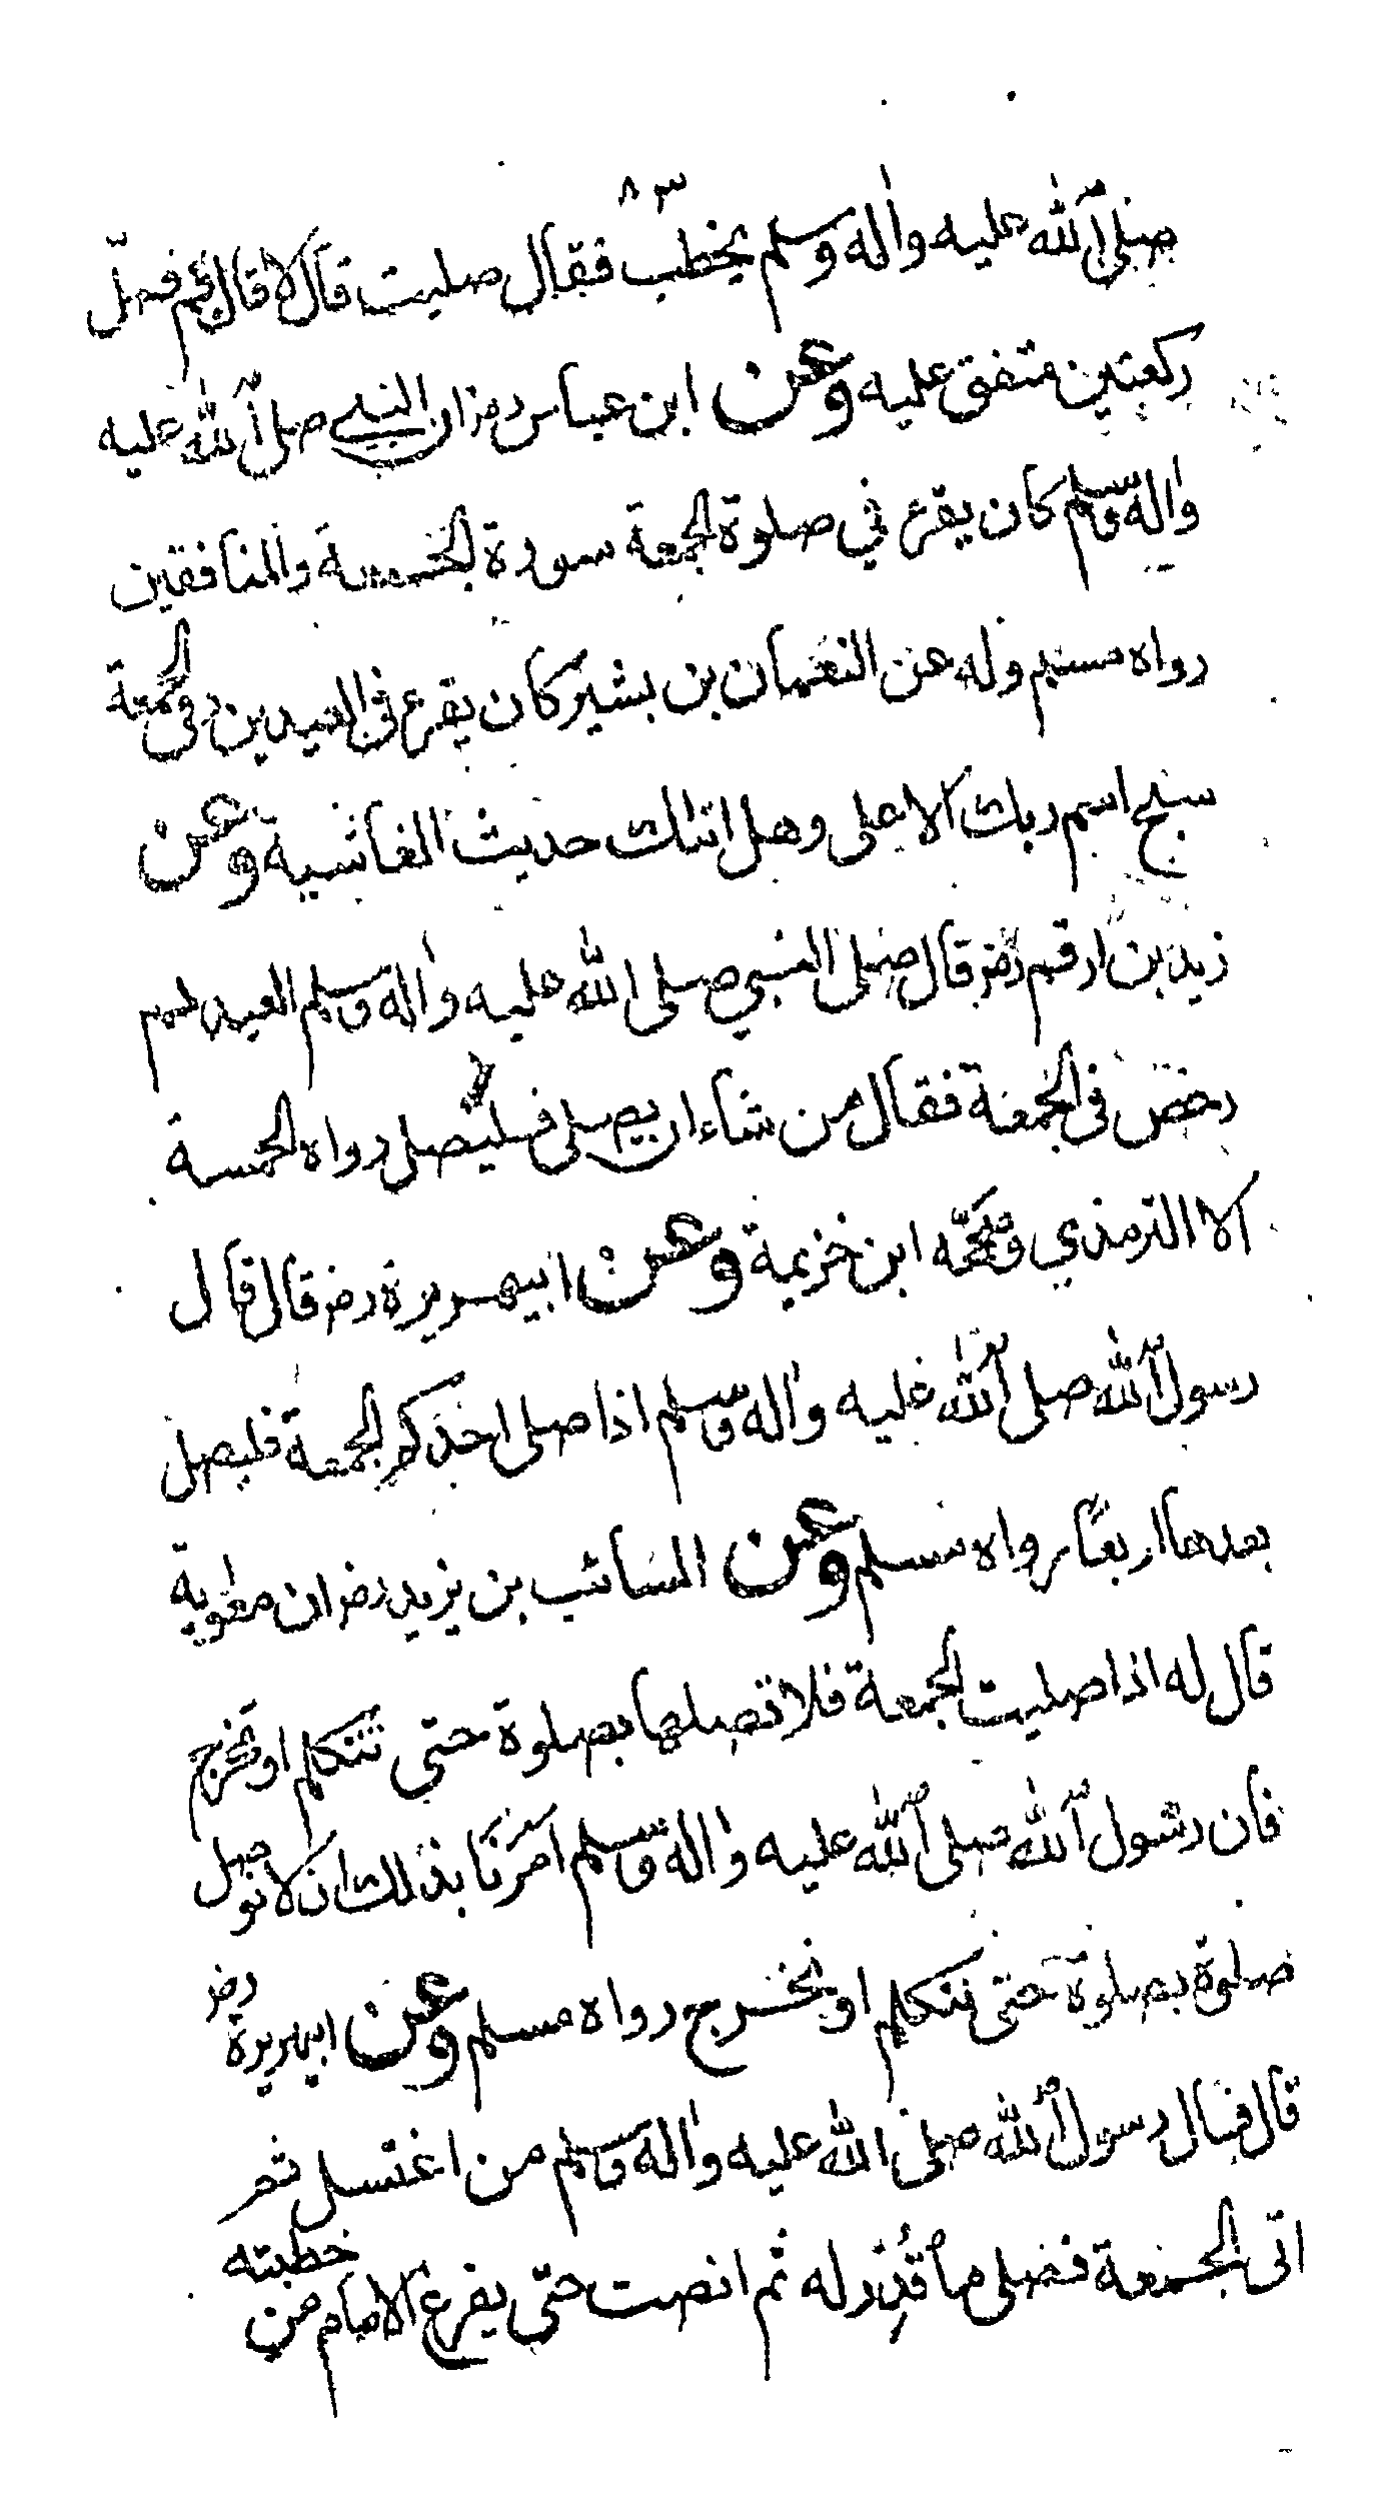 ٨٣
صلى الله عليه واله وسلم يخطب فقال صليت قال لا قال قم فصلّ
ركعتين متفق عليه وعن ابن عباس رضـ ان النبي صلى الله عليه
واله وسلم كان يقرء في صلوة الجمعة سورة الجمعة والمنافقين
رواه مسلم وله عن النعمان بن بشير كان يقرء في العيدين وفي الجمعة
سبح اسم ربك الاعلى وهل اتىك حديث الغاشية وعن
زيد بن ارقم رضـ قال صلى النبي صلى الله عليه واله وسلم العيد ثم
رخص في الجمعة فقال من شاء ان يصلى فليصل رواه الخمسة
الا الترمذي وصححّه ابن خزيمة وعن ابيهريرة رضـ قال قال
رسول الله صلى الله عليه واله وسلم اذا صلى احدكم الجمعة فليصل
بعدها اربعًا رواه مسلم وعن السائب بن يزيد رضـ ان معوية
قال له اذا صليت الجمعة فلا تصلها بصلوة حتى تتكلم او تخرج
فان رسول الله صلى الله عليه واله وسلم امرنا بذلك ان لا نوصل
صلوة بصلوة حتى نتكلم او نخرج رواه مسلم وعن ابيهريرة رضـ
قال قال رسول الله صلى الله عليه واله وسلم من اغتسل ثم
اتى الجمعة فصلى ما قُدِّر له ثم انصت حتّى يفرغ الامام من خطبته